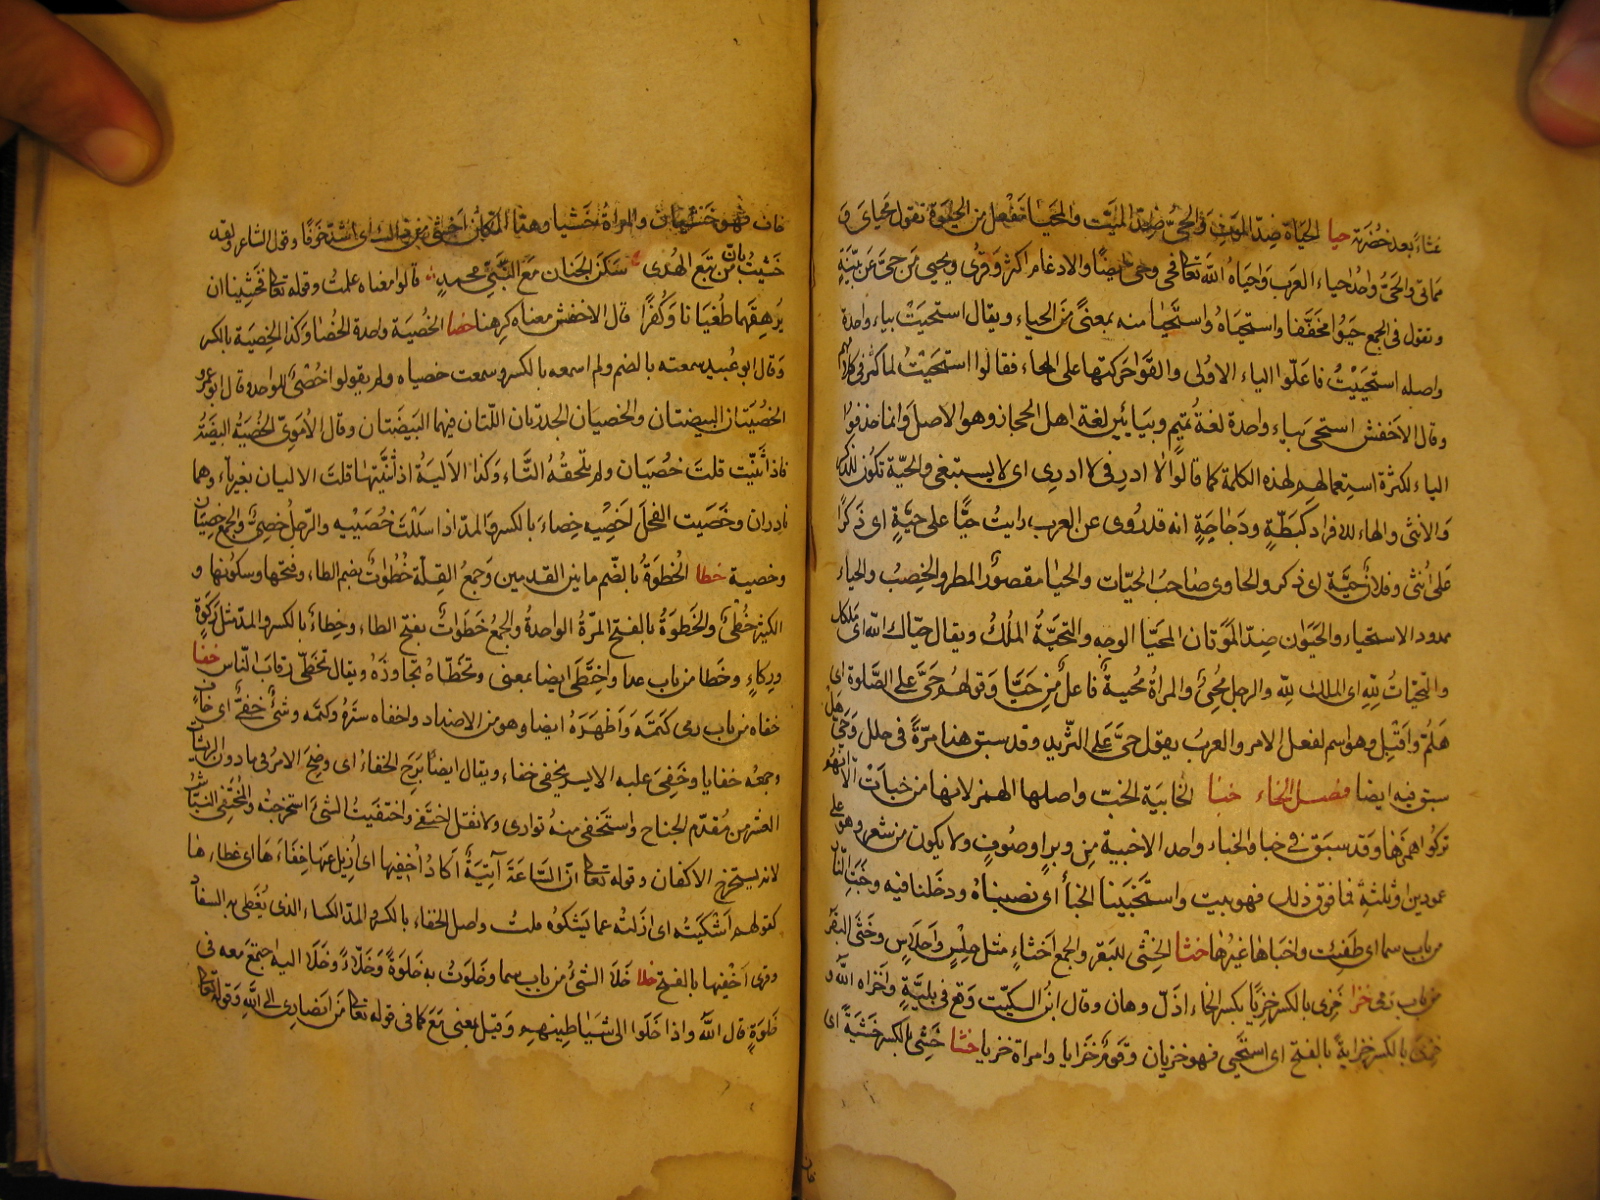 غثاءً بعد خضرته حيا الحياة ضدّ الموت والحيّ ضدّ الميّت والمحيا مفعل من الحيٰوة تقول محياى و
مماتى والحىّ واحد احياء العرب واحياه الله تعالى فحى وحىّ ايضًا والادغام اكثر وقرئ ويحيى من حىّ عن بيّنةٍ
وتقول فى الجمع حيوا مخففا واستحياه واستحيا منه بمعنًى من الحياء ويقال استحيت بياء واحدة
واصله استحييت فاعلّوا الياء الاولى والقوا حركتها على الحاء فقالوا استحيت لما كثر فى كلامهم
وقال الاخفش استحى بياء واحدة لغة تميم وبيائين لغة اهل الحجاز وهو الاصل وانما حذفوا
الياء لكثرة استعمالهم لهذه الكلمة كما قالوا لا ادر فى لا ادرى اى لا يستبغى والحيّة تكون للذكر
والانثى والهاء للافراد كبطّةٍ ودجاجةٍ انه قد روى عن العرب رايت حيًّا على حيّةٍ اى ذكرًا
على انثى وفلان حيّة اى ذكر والحاوى صاحب الحيّات والحيا مقصور المطر والخصب والحياء
ممدود الاستحياء والحيوان ضدّ الموتان المحيّا الوجه والتحيّة الملك ويقال حيّاك الله اى ملكك
والتحيّات لله اى الملك لله والرجل محيىٌ والمراة محييةٌ فاعل من حيّا وقولهم حىّ على الصّلوة اى
هلمّ واقبل وهو اسم لفعل الامر والعرب يقول حىّ على الثريد وقد سبق هذا مرّةً فى هلل وحىّ هل
سبق فيه ايضا فصل الخاء خبا الخابية الحبّ واصلها الهمز لانها من خبأت الّا انّهم
تركوا همزها وقد سبق فى خبا والخباء واحد الاخبية من وبرٍ او صوفٍ ولا يكون من شعر وهو على
عمودين او ثلثةٍ فما فوق ذلك فهو بيت واستخبينا الخبأ اى نصبناه ودخلنا فيه وخبت النّار
من باب سما اى طفئت واخباها غيرها خثا الخثى للبقر والجمع اخثاءٍ مثل حلسٍ واحلاسٍ وخثى البقر
من باب رمى خزا خزى بالكسر خزيًا بكسر الخاء اذلّ وهان وقال ابن السكّيت وقع فى بليّةٍ واخزاه الله و
خزى بالكسر خزايةً بالفتح اى استحيى فهو خزيان وقوم خزايا وامراة خزيا خشا خشى بالكسر خشيةً اى
خاف فهو خشيان والمراة خشيا وهذا المكان اخشى من ذلك اى اشدّ خوفا وقول الشاعر ولقد
خشيت بان من تبع الهدى سكن الجنان مع النّبىّ محمدٍ قالوا معناه علمت وقوله تعالى فخشينا ان
يرهقهما طغيانا وكفرًا قال الاخفش معناه كرهنا خصا الخصية واحدة الخصا وكذا الخصية بالكسر
وقال ابو عبيد سمعته بالضم ولم اسمعه بالكسر وسمعت خصياه ولم يقولوا خصىٌ للواحد وقال ابو عمرو
الخصيتان البيضتان والخصيان الجلدتان اللتان فيهما البيضتان وقال الاموىّ الخصية البيضة
فاذا ثنّيت قلت خصيان ولم تلحقه التّاء وكذا الالية اذ ثنّيتها قلت الاليان بغير تاء وهما
نادران وخصيت الفحل اخصيه خصاءً بالكسر والمدّ اذا سللت خصيتيه والرّجل خصىّ والجمع خصيان
وخصية خطا الخطوة بالضّم ما بين القدمين وجمع القلّة خطوات بضم الطاء وفتحها وسكونها و
الكثير خطىً والخطوة بالفتح المرّة الواحدة والجمع خطوات بفتح الطاء وخطاء بالكسر والمدّ مثل ركوةٍ
وركاءٍ وخطا من باب عدا واختطى ايضا بمعنى وتخطّاه تجاوزه ويقال تخطّى رقاب النّاس خفا
خفاه من باب رمى كتمه واظهره ايضا وهو من الاضداد واخفاه ستره وكتمه وشىءٌ خفىّ اى خافٍ
وجمعه خفايا وخفى عليه الامر يخفى خفاء ويقال ايضًا برح الخفاء اى وضح الامر وما دون الريشات
العشر من مقدّم الجناح واستخفى منه توارى ولا تقل اختفى واختفيت الشىء استخرجته والمختفى النبّاش
لانه يستخرج الاكفان وقوله تعالى انّ السّاعة آتيةٌ اكاد اخفيها اى ازيل عنها خفاءها اى غطاءها
كقولهم اشكيته اى ازلته عما يشكوه قلت واصل الخفاء بالكسر والمدّ الكساء الذى يغطّى به السقاء
وقرئ اخفيها بالفتح خلا خلا الشىء من باب سما وخلوت به خلوةً وخلاءً وخلا اليه اجتمع معه فى
خلوةٍ قال الله واذا خلوا الى شياطينهم وقيل بمعنى مع كما فى قوله تعالى من انصارى الى الله وقوله تعالى